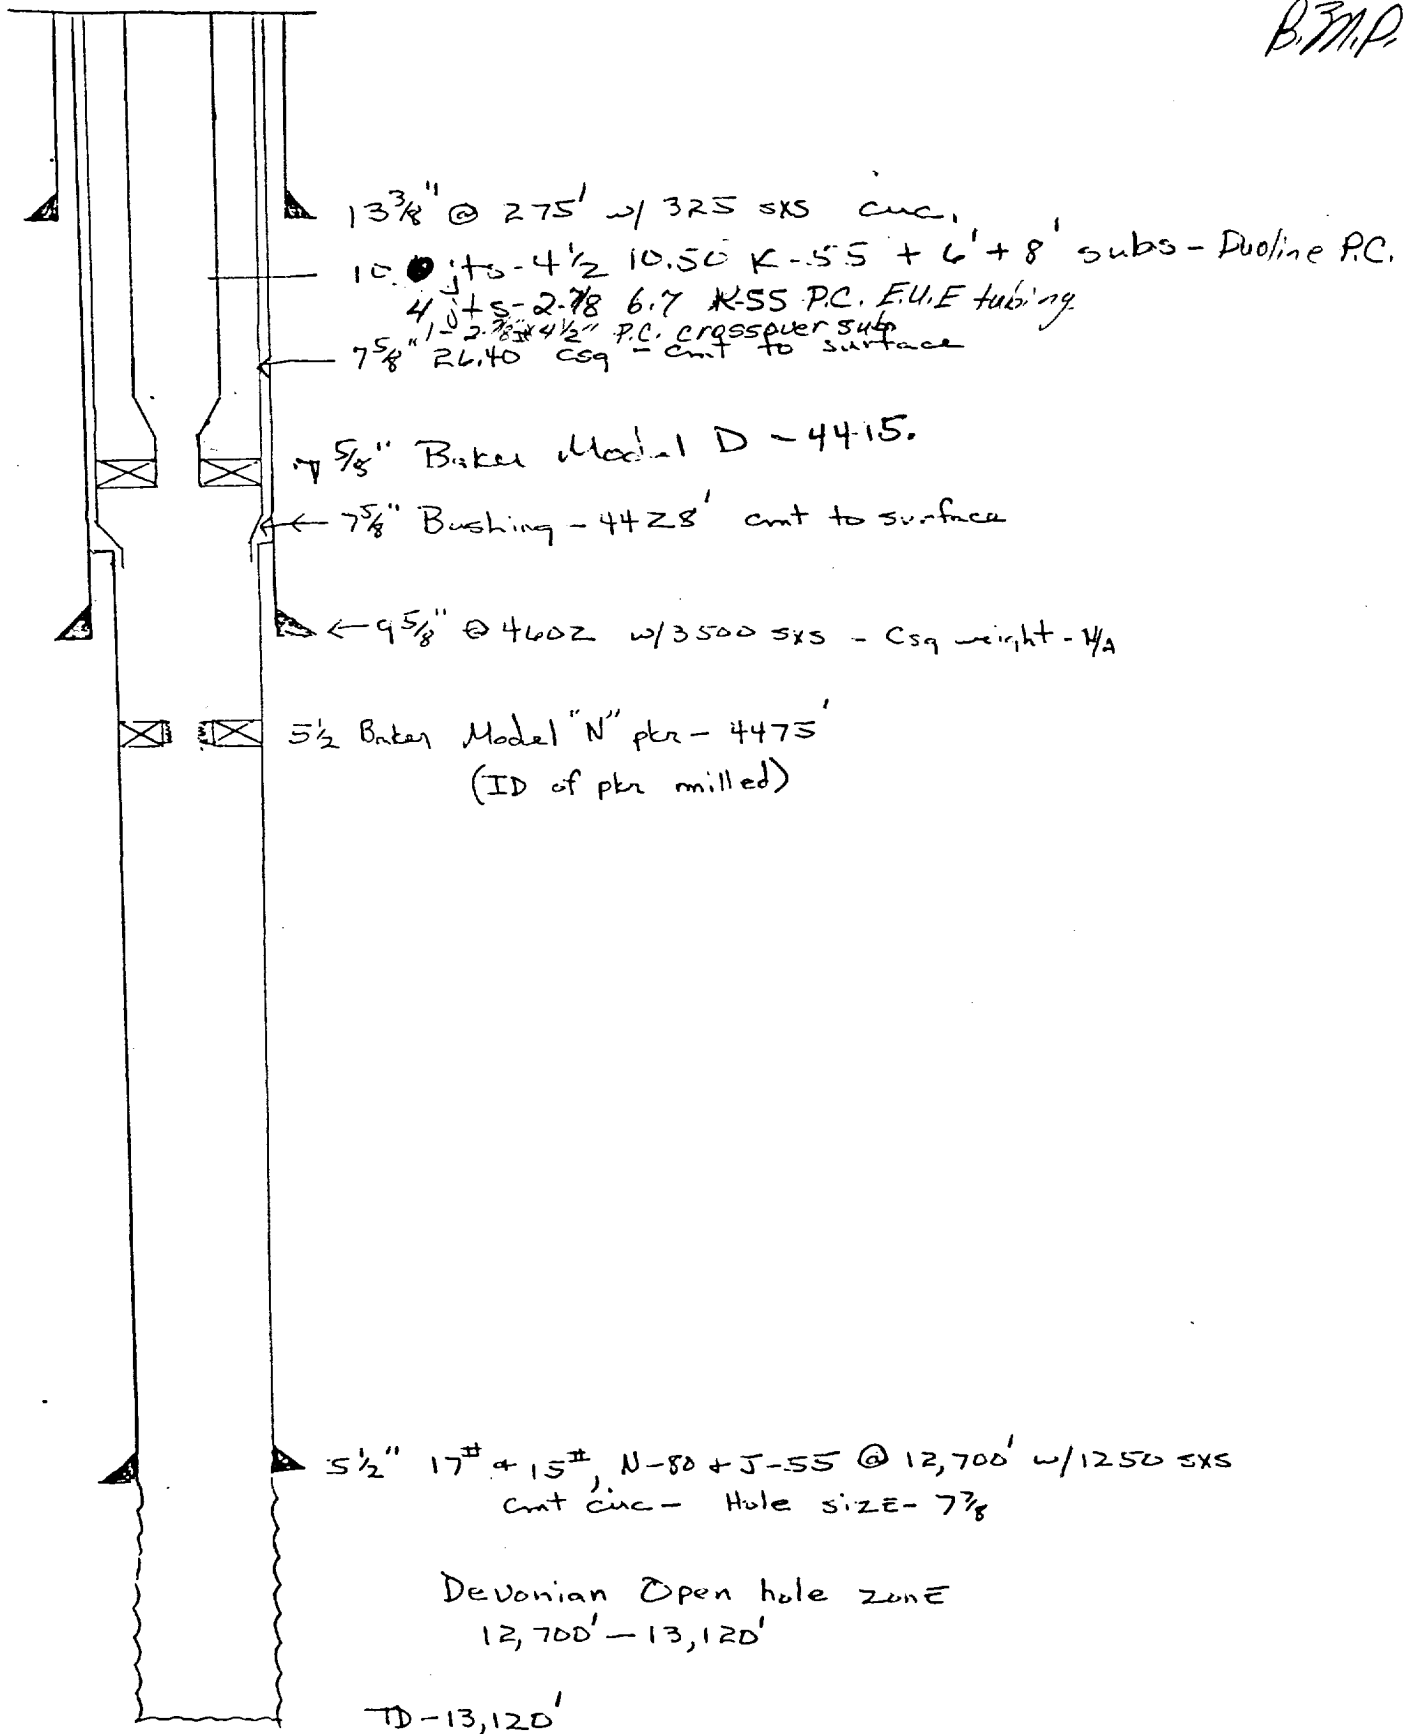 B.M.P.
13 3/8" @ 275' w/ 325 sxs circ.
jts - 4 1/2 10.50 K-55 + 6' + 8' subs - Duoline P.C.
4 jts - 2-7/8 6.7 K-55 P.C. E.U.E tubing
1 - 2-7/8" x 4 1/2" P.C. crossover sub
7 5/8" 26.40 csg - cmt to surface
7 5/8" Baker Model D - 4415.
7 5/8" Bushing - 4428' cmt to surface
9 5/8" @ 4602 w/ 3500 sxs - Csg weight - N/A
5 1/2 Baker Model "N" pkr - 4475'
(ID of pkr milled)
5 1/2" 17# + 15#, N-80 + J-55 @ 12,700' w/ 1250 sxs
cmt circ - Hole size - 7 7/8
Devonian Open hole zone
12,700' - 13,120'
TD - 13,120'